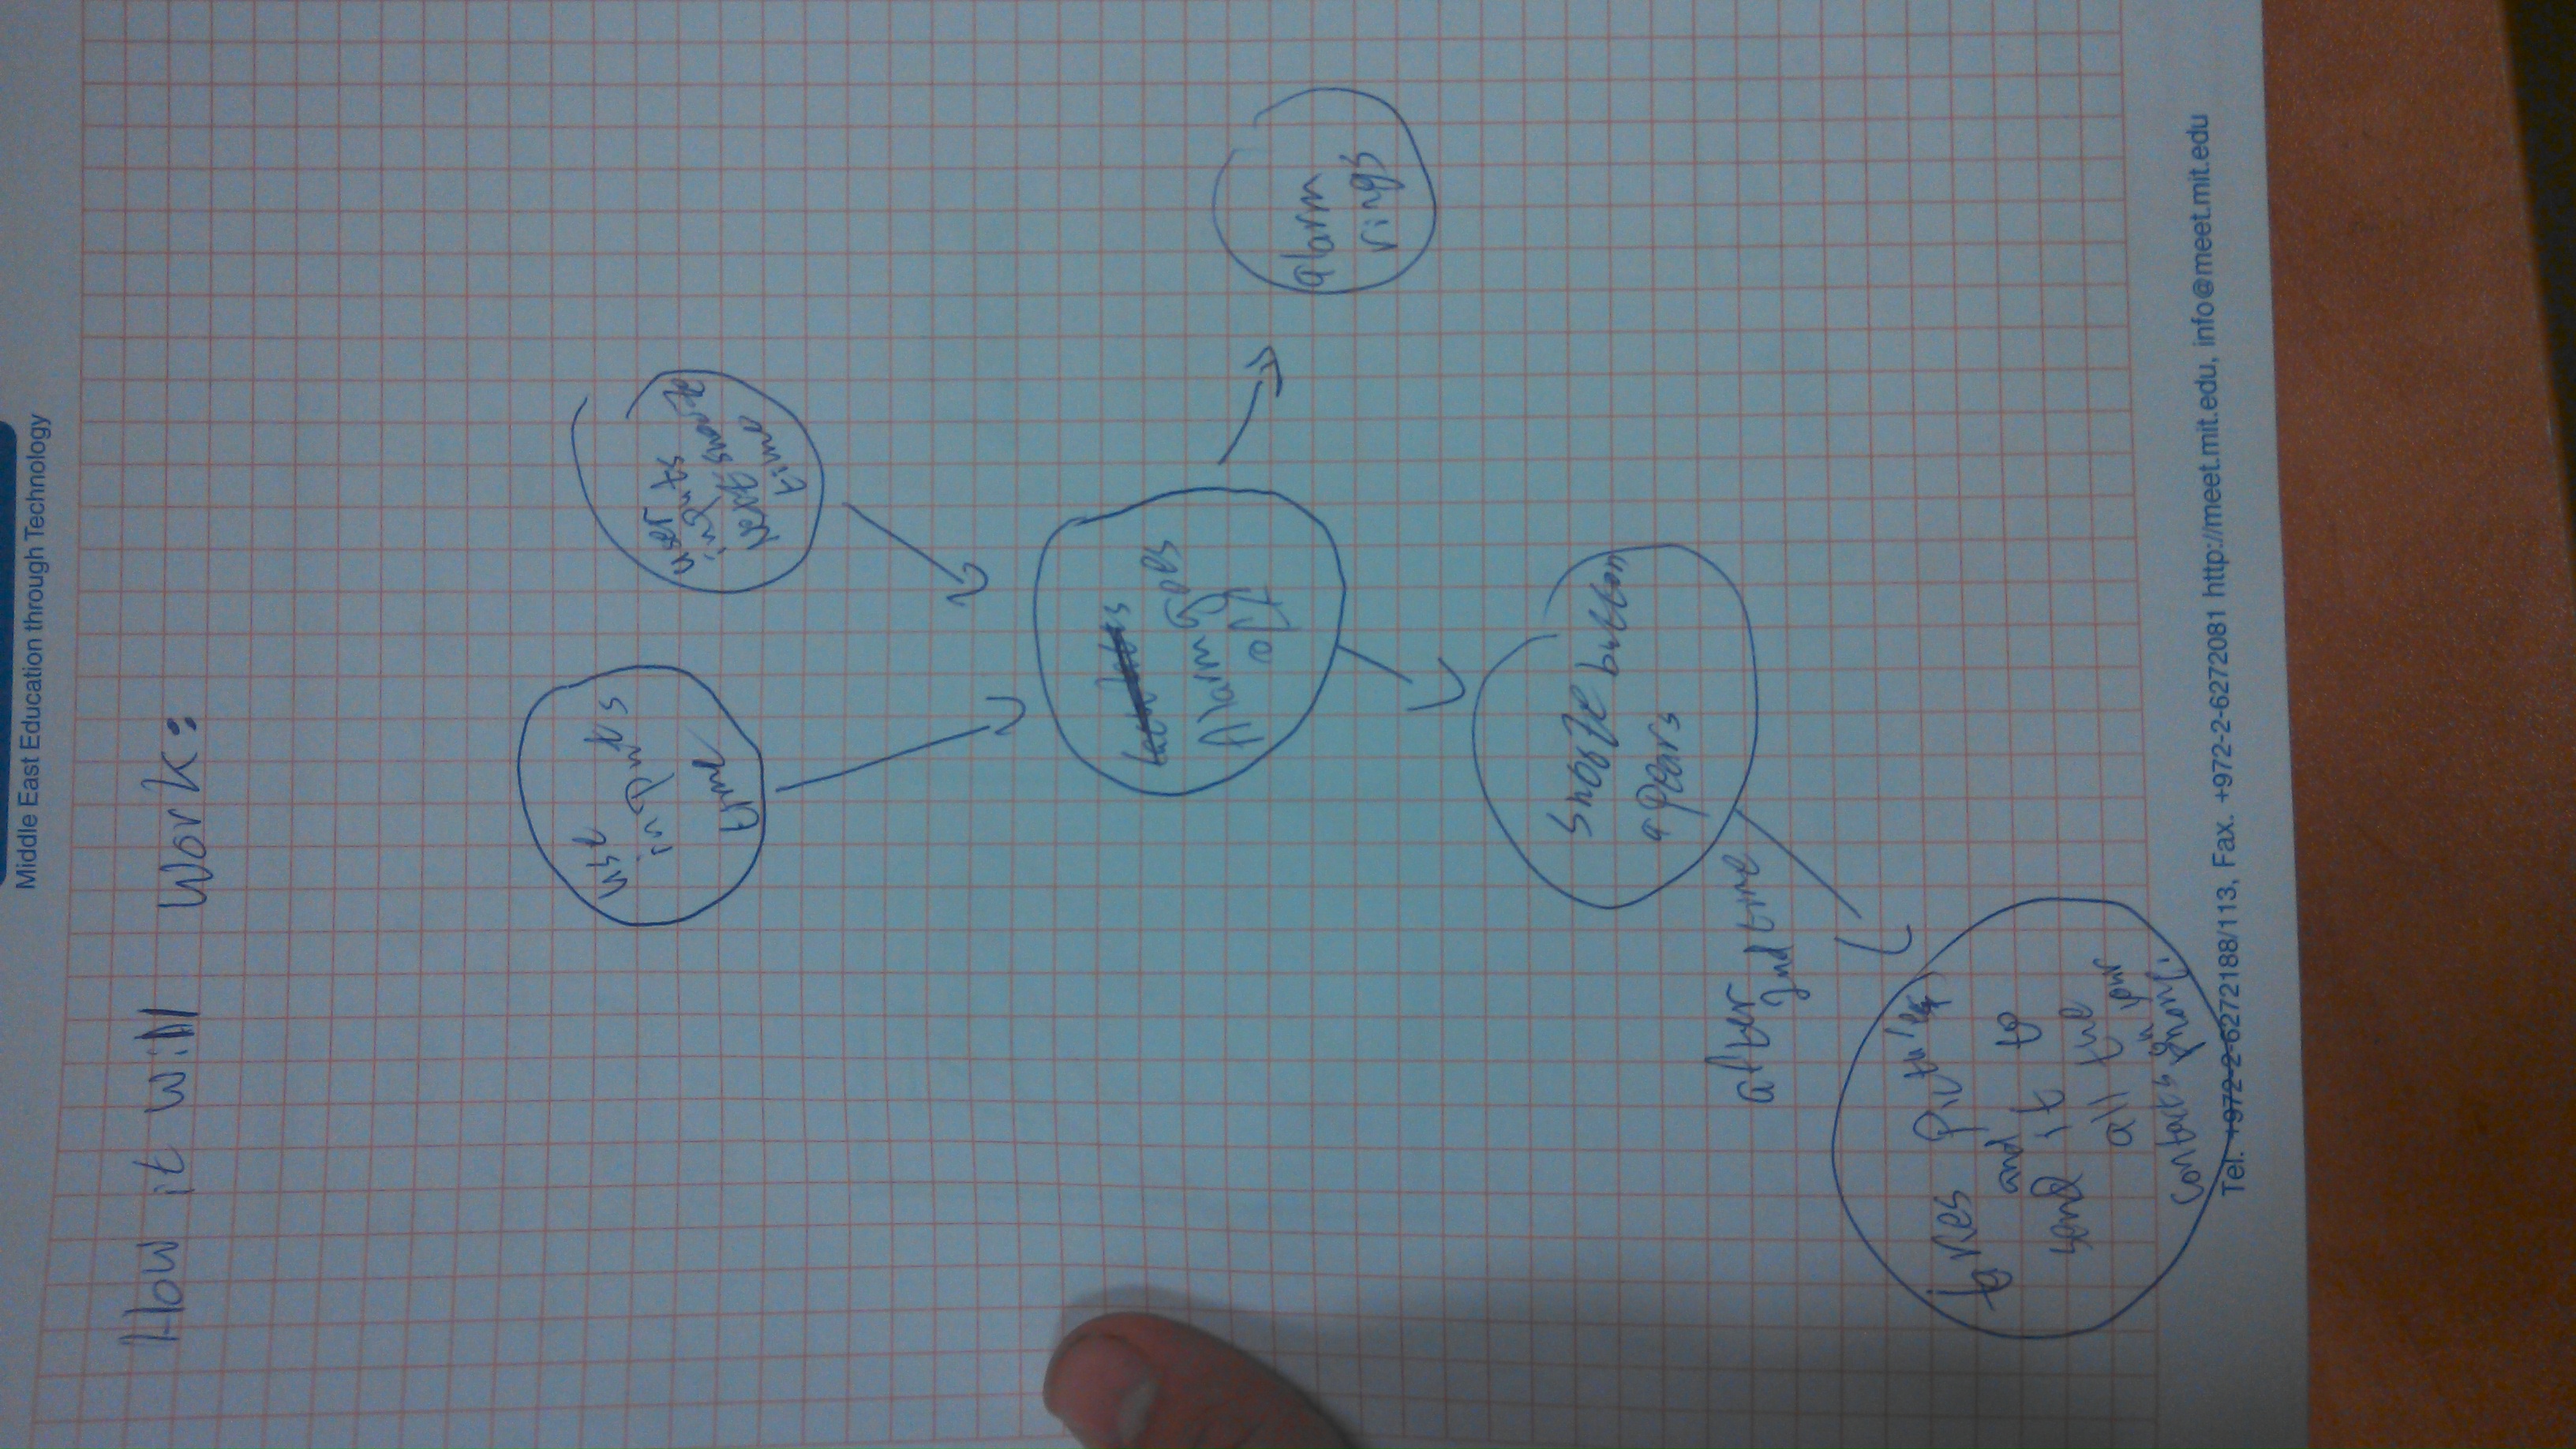 Middle East Education through Technology
How it will work:
use
inputs
time
user
inputs
Next snooze
time
Alarm goes
off
alarm
rings
Snooze button
apears
after
2nd time
takes Pictures
and
send it to
all the
contacts on your
phone.
Tel. +972-2-6272188/113, Fax. +972-2-6272081 http://meet.mit.edu, info@meet.mit.edu